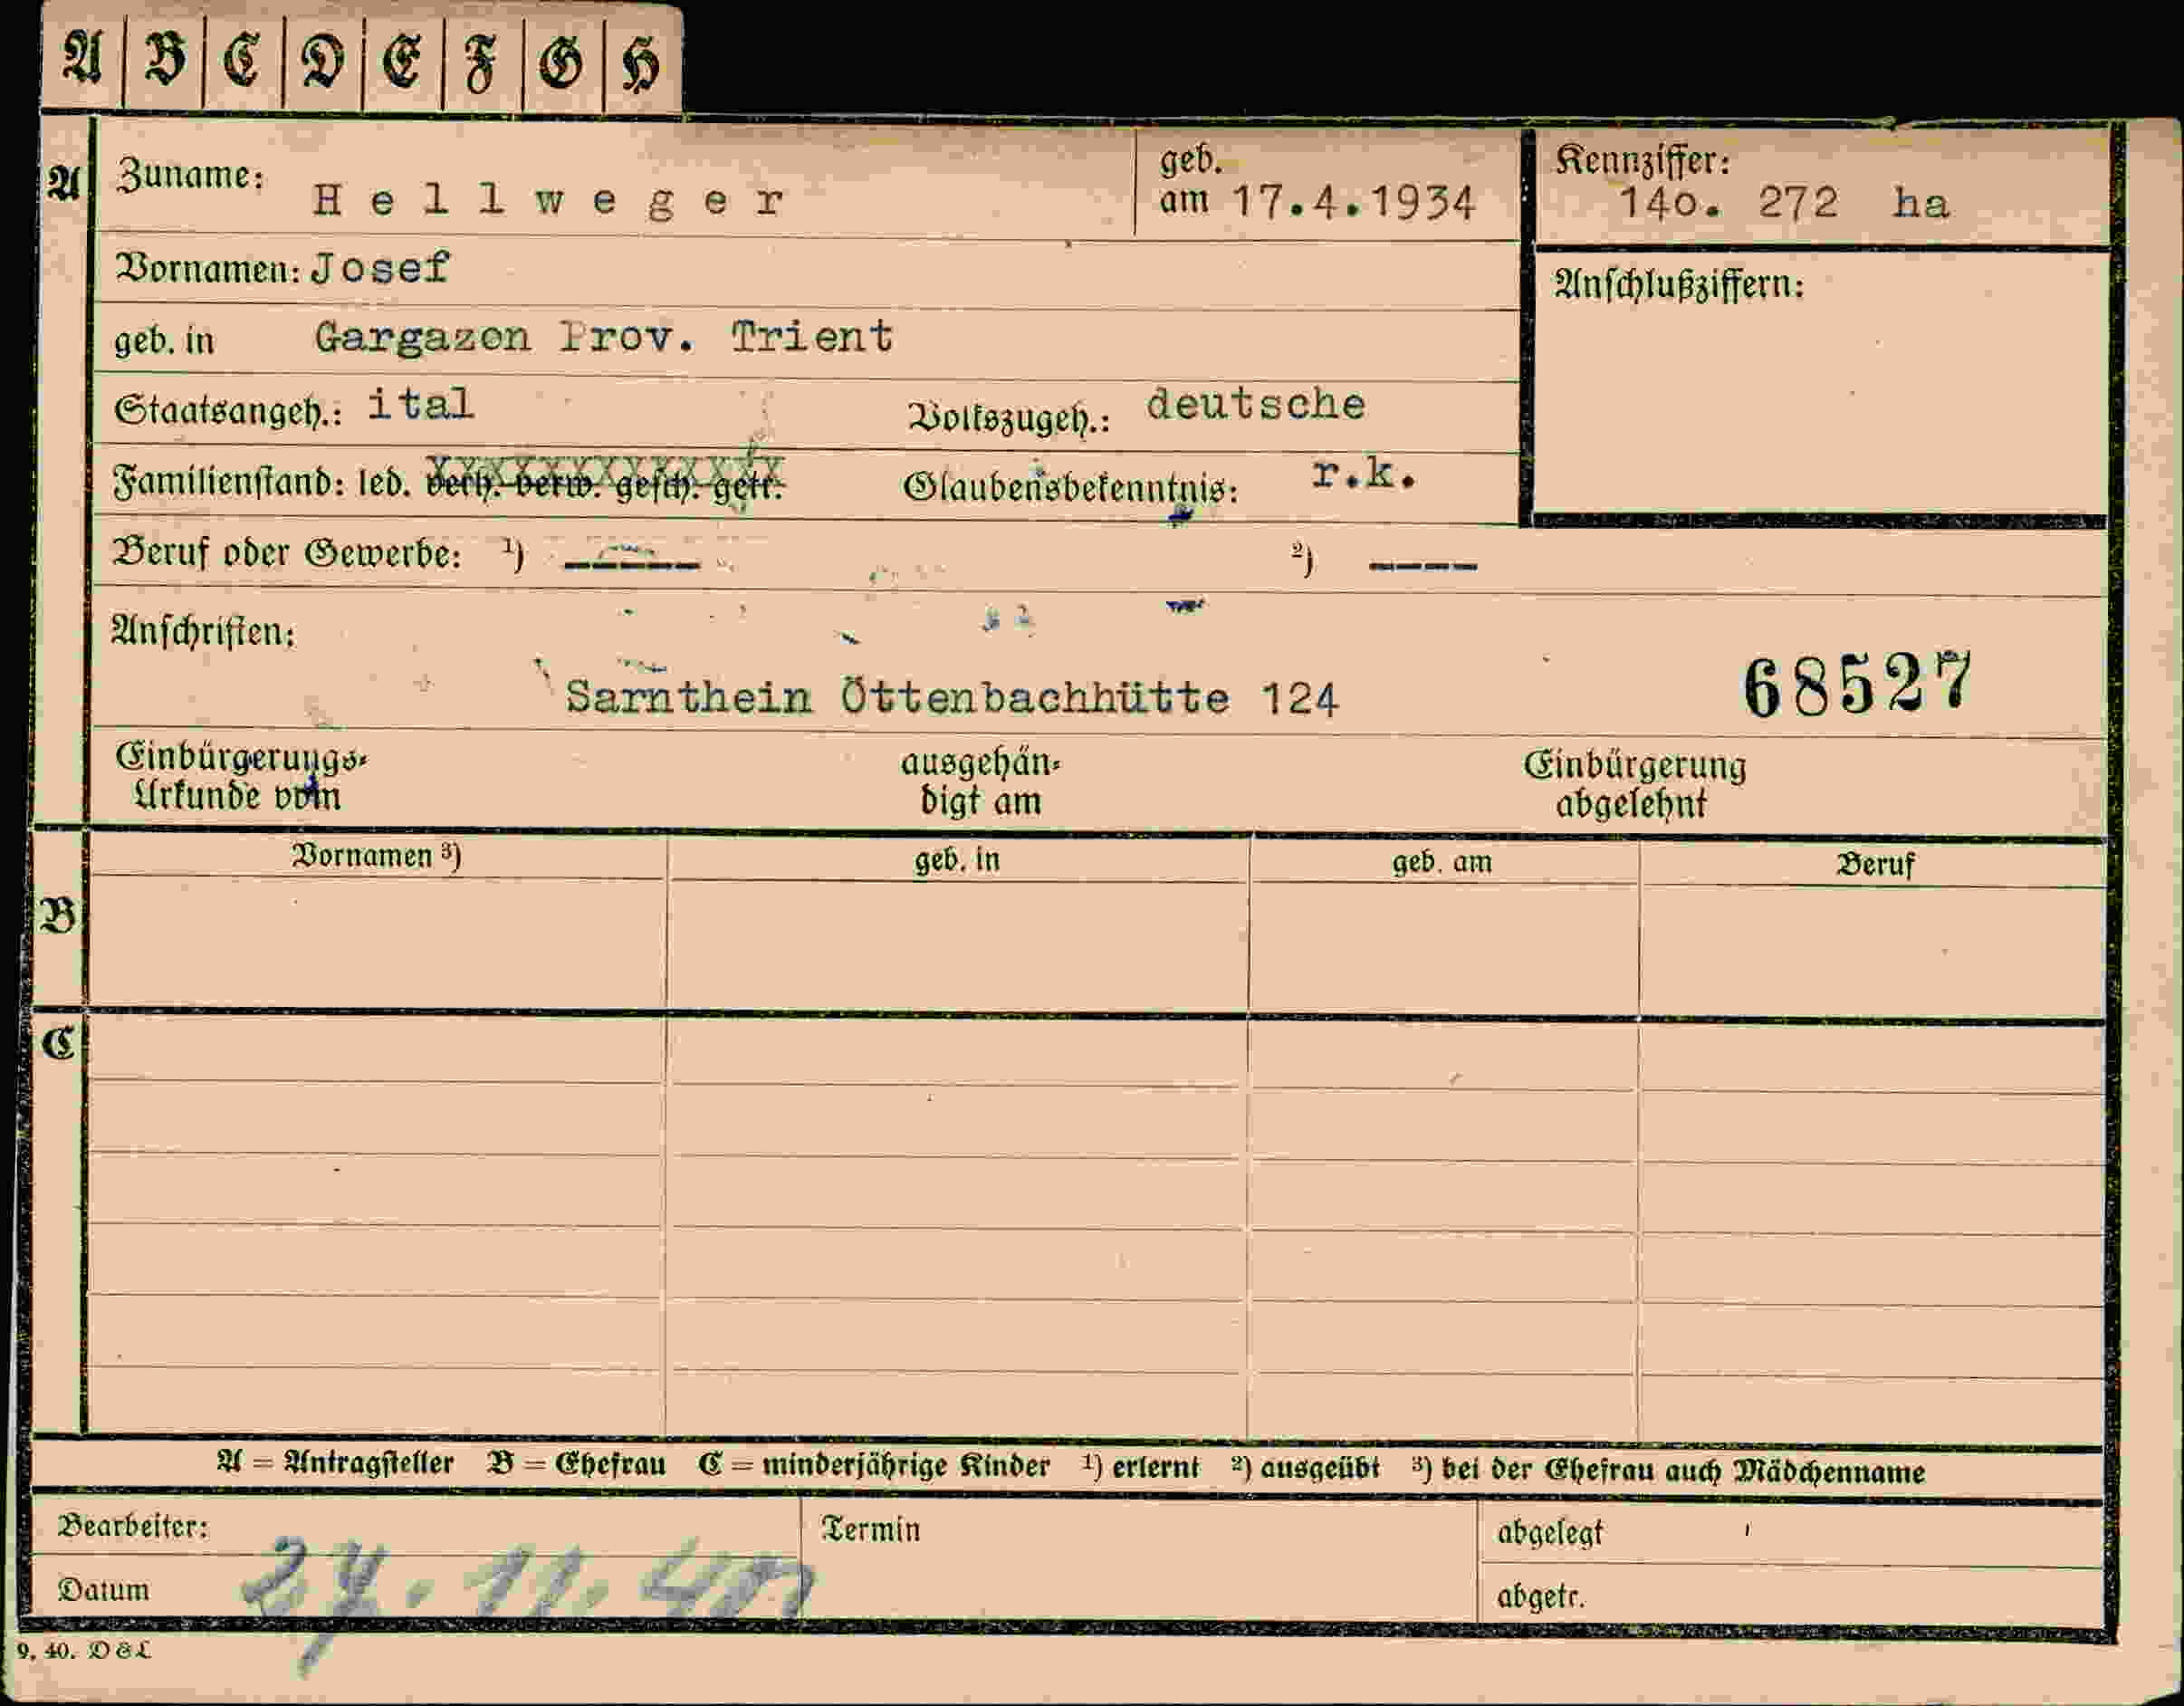 A B C D E F G H
A Zuname: Hellweger geb. am 17.4.1934 Kennziffer: 140. 272 ha
Vornamen: Josef Anschlußziffern:
geb. in Gargazon Prov. Trient
Staatsangeh.: ital Volkszugeh.: deutsche
Familienstand: led. verh. verw. gesch. getr. Glaubensbekenntnis: r.k.
Beruf oder Gewerbe: 1) ----- 2) ----
Anschriften:
Sarnthein Öttenbachhütte 124 68527
Einbürgerungs- ausgehän- Einbürgerung
Urkunde vom digt am abgelehnt
Vornamen 3) geb. in geb. am Beruf
B
C
A = Antragsteller B = Ehefrau C = minderjährige Kinder 1) erlernt 2) ausgeübt 3) bei der Ehefrau auch Mädchenname
Bearbeiter: Termin abgelegt
Datum abgetr.
9. 40. D & L